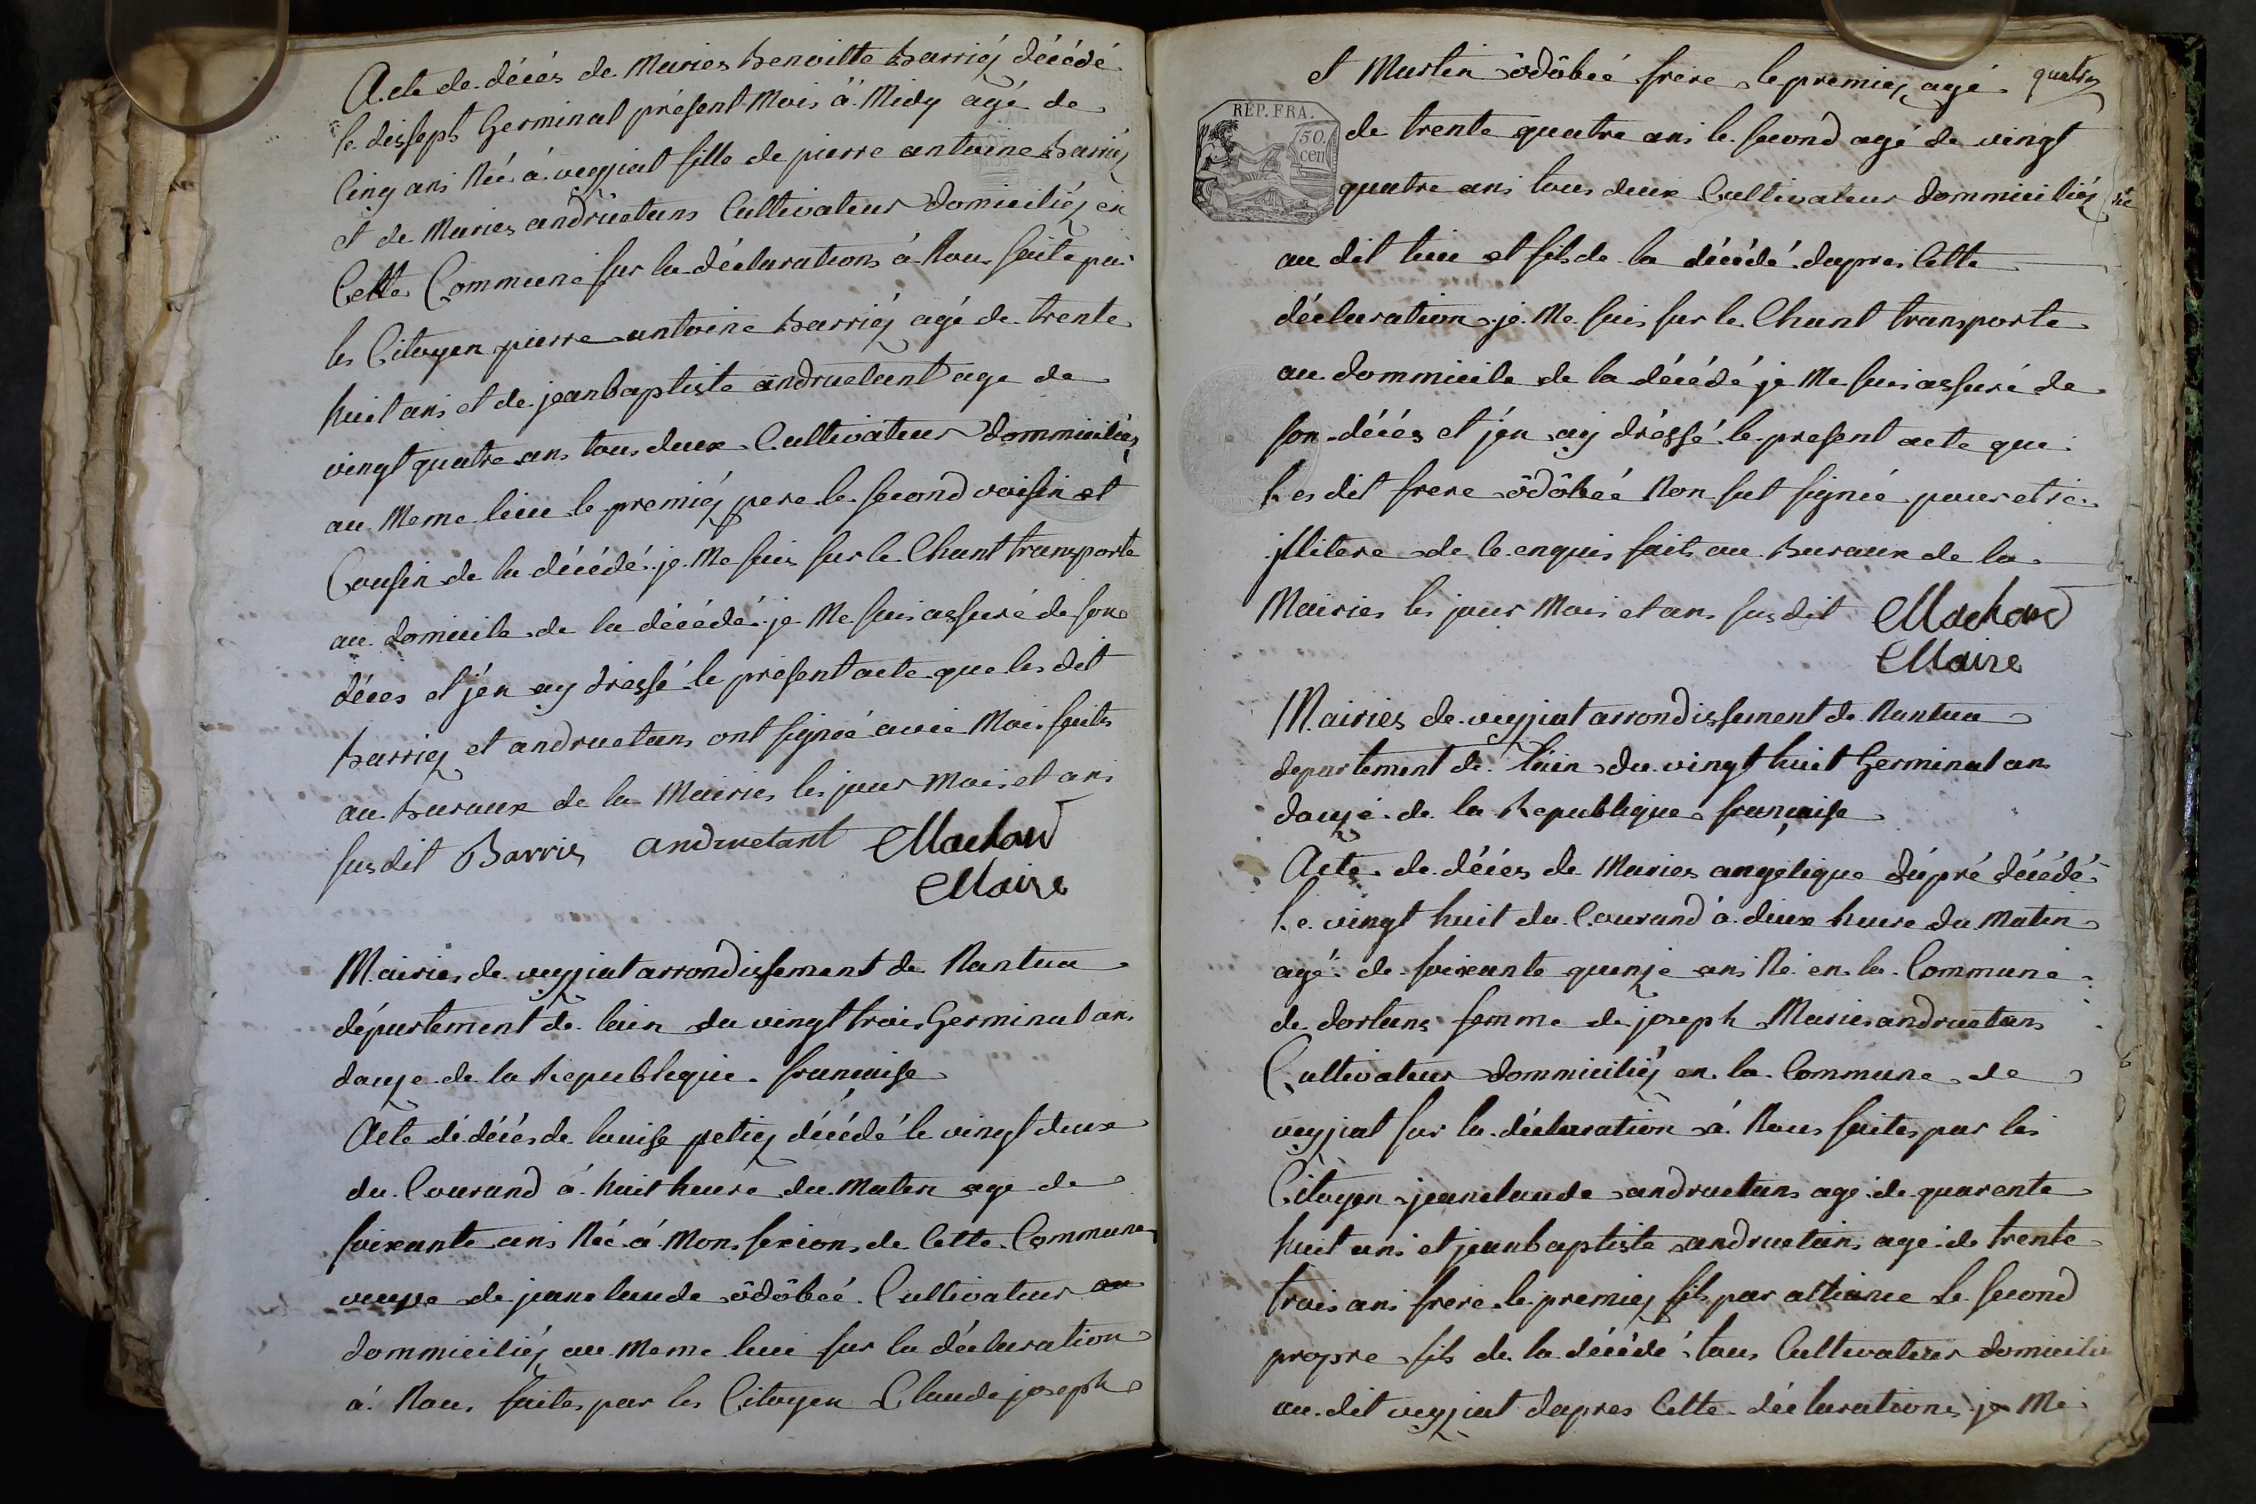 Acte de décés de Maries Benoitte Barriéz décédé
le dissept Germinal présent Mois à Midy agé de
Cinq ans Née à veyziat fille de pierre antoine Barriéz
et de Maries andruetans Cultivateur Domiciliéz en
Cette Commune sur la déclarations à Nous faite par
les Citoyen pierre antoine Barriéz agé de trente
huit ans et de jeanbaptiste andruetant age de
vingt quatre ans tous deux Cultivateur Dommiciliéz
au Meme lieu le premiéz pere le second voisin et
Cousin de la décédé je Me suis sur le Chant transporte
au domicile de la décédé je Me suis assuré de sone
déces et j'én ay dressé le présent acte que les dit
Barriez et andruetans ont signéé avec Moi faits
au Buraux de la Mairies les jour Mois et ans
susdit Barris andruetant Machard
Maire
Mairies de veyziat arrondissement de Nantua
département de lain du vingt trois Germinal ans
douze de la Republique française
Acte dé décés de louise petiez décédé le vingt deux
du Courand à huit heure du Maten age de
soixante ans Née à Mons sexions de Cette Commune
veuve de jeanclaude ôdôbéé Cultivateur au
dommiciliéz au Meme lieu sur la déclaration
à Nous faites par les Citoyen Claude joseph
et Martin ôdôbéé frere le premiez agé quatre
RÉP. FRA.
50. cen
de trente quatre ans le second agé de vingt
quatre ans tous deux Cultivateur dommiciliéz
au dit lieu et fils de la décédé dapres Cette
déclaration je Me suis sur le Chant transporte
au dommicile de la décédé je Me suis assuré de
son décés et j'én ay dréssé le present acte que
les dit frere ôdôbéé Non sut signéé pour etre
illitere de le enquis faits au Buraux de la
Mairies les jour Mois et ans susdit Machard
Maire
Mairies de veyziat arrondissement de Nantua
departement de lain du vingt huit Germinal an
douze de la Republique française
Acte de décés de Maries angelique dúpré décédé
le vingt huit du Courand à deux heure du Maten
agé de soixante quinze ans Né en la Commune
de dortans femme de joseph Maries andruetans
Cultivateur dommiciliéz en la Commune de
veyziat sur la déclaration à Nous faites par les
Citoyen jeanclaude andruetans age de quarente
huit ans et jeanbaptiste andruetans agé de trente
trois ans frere le premiez fils par alliance le second
propre fils de la décédé tous Cultivateur domicilié
au dit veyziat dapres Cette déclarations je Me